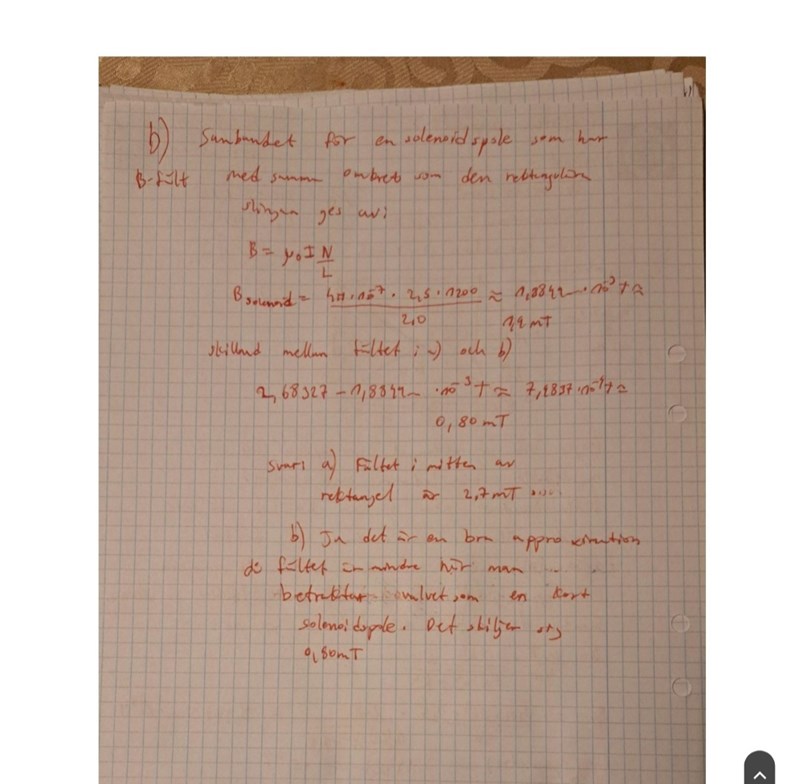 b) Sambandet för en solenoidspole som har
B-fält med samma omkret som den rektangulära
slingan ges av:
B = μ₀I N/L
B solenoid = 4π·10⁻⁷ · 2,5 · 1200 / 2,0 ≈ 1,8849... · 10⁻³ T ≈
1,9 mT
skillnad mellan fältet i a) och b)
2,68327 - 1,8849... · 10⁻³ T ≈ 7,9837 · 10⁻⁴ T ≈
0,80 mT
svar: a) Fältet i mitten av
rektangel är 2,7 mT
b) Ja det är en bra approximation
då fältet är mindre när man
betraktar som en kort
solenoidspole. Det skiljer sig
0,80 mT